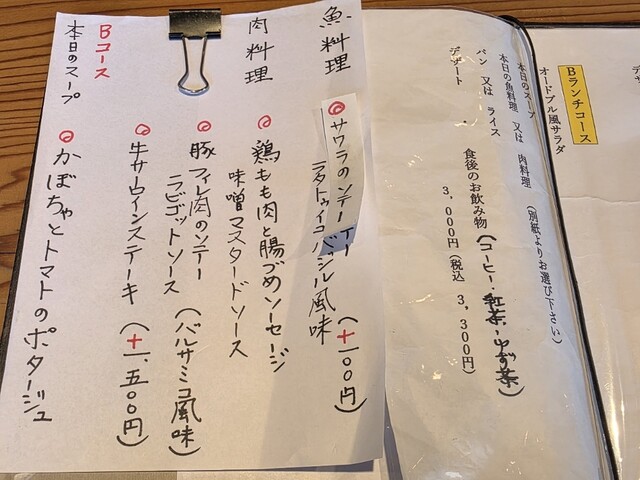 デザ
Bランチコース
オードブル風サラダ
本日のスープ
本日の魚料理 又は 肉料理 (別紙よりお選び下さい)
パン 又は ライス
デザート ・ 食後のお飲み物(コーヒー・紅茶・ゆず茶)
3,000円(税込 3,300円)
魚料理
サワラのソテー (+100円)
ラタトゥイユ バジル風味
肉料理
鶏もも肉と腸づめソーセージ
味噌マスタードソース
豚フィレ肉のソテー
ラビゴットソース (バルサミコ風味)
牛サーロインステーキ (+1,500円)
Bコース
本日のスープ
かぼちゃとトマトのポタージュ